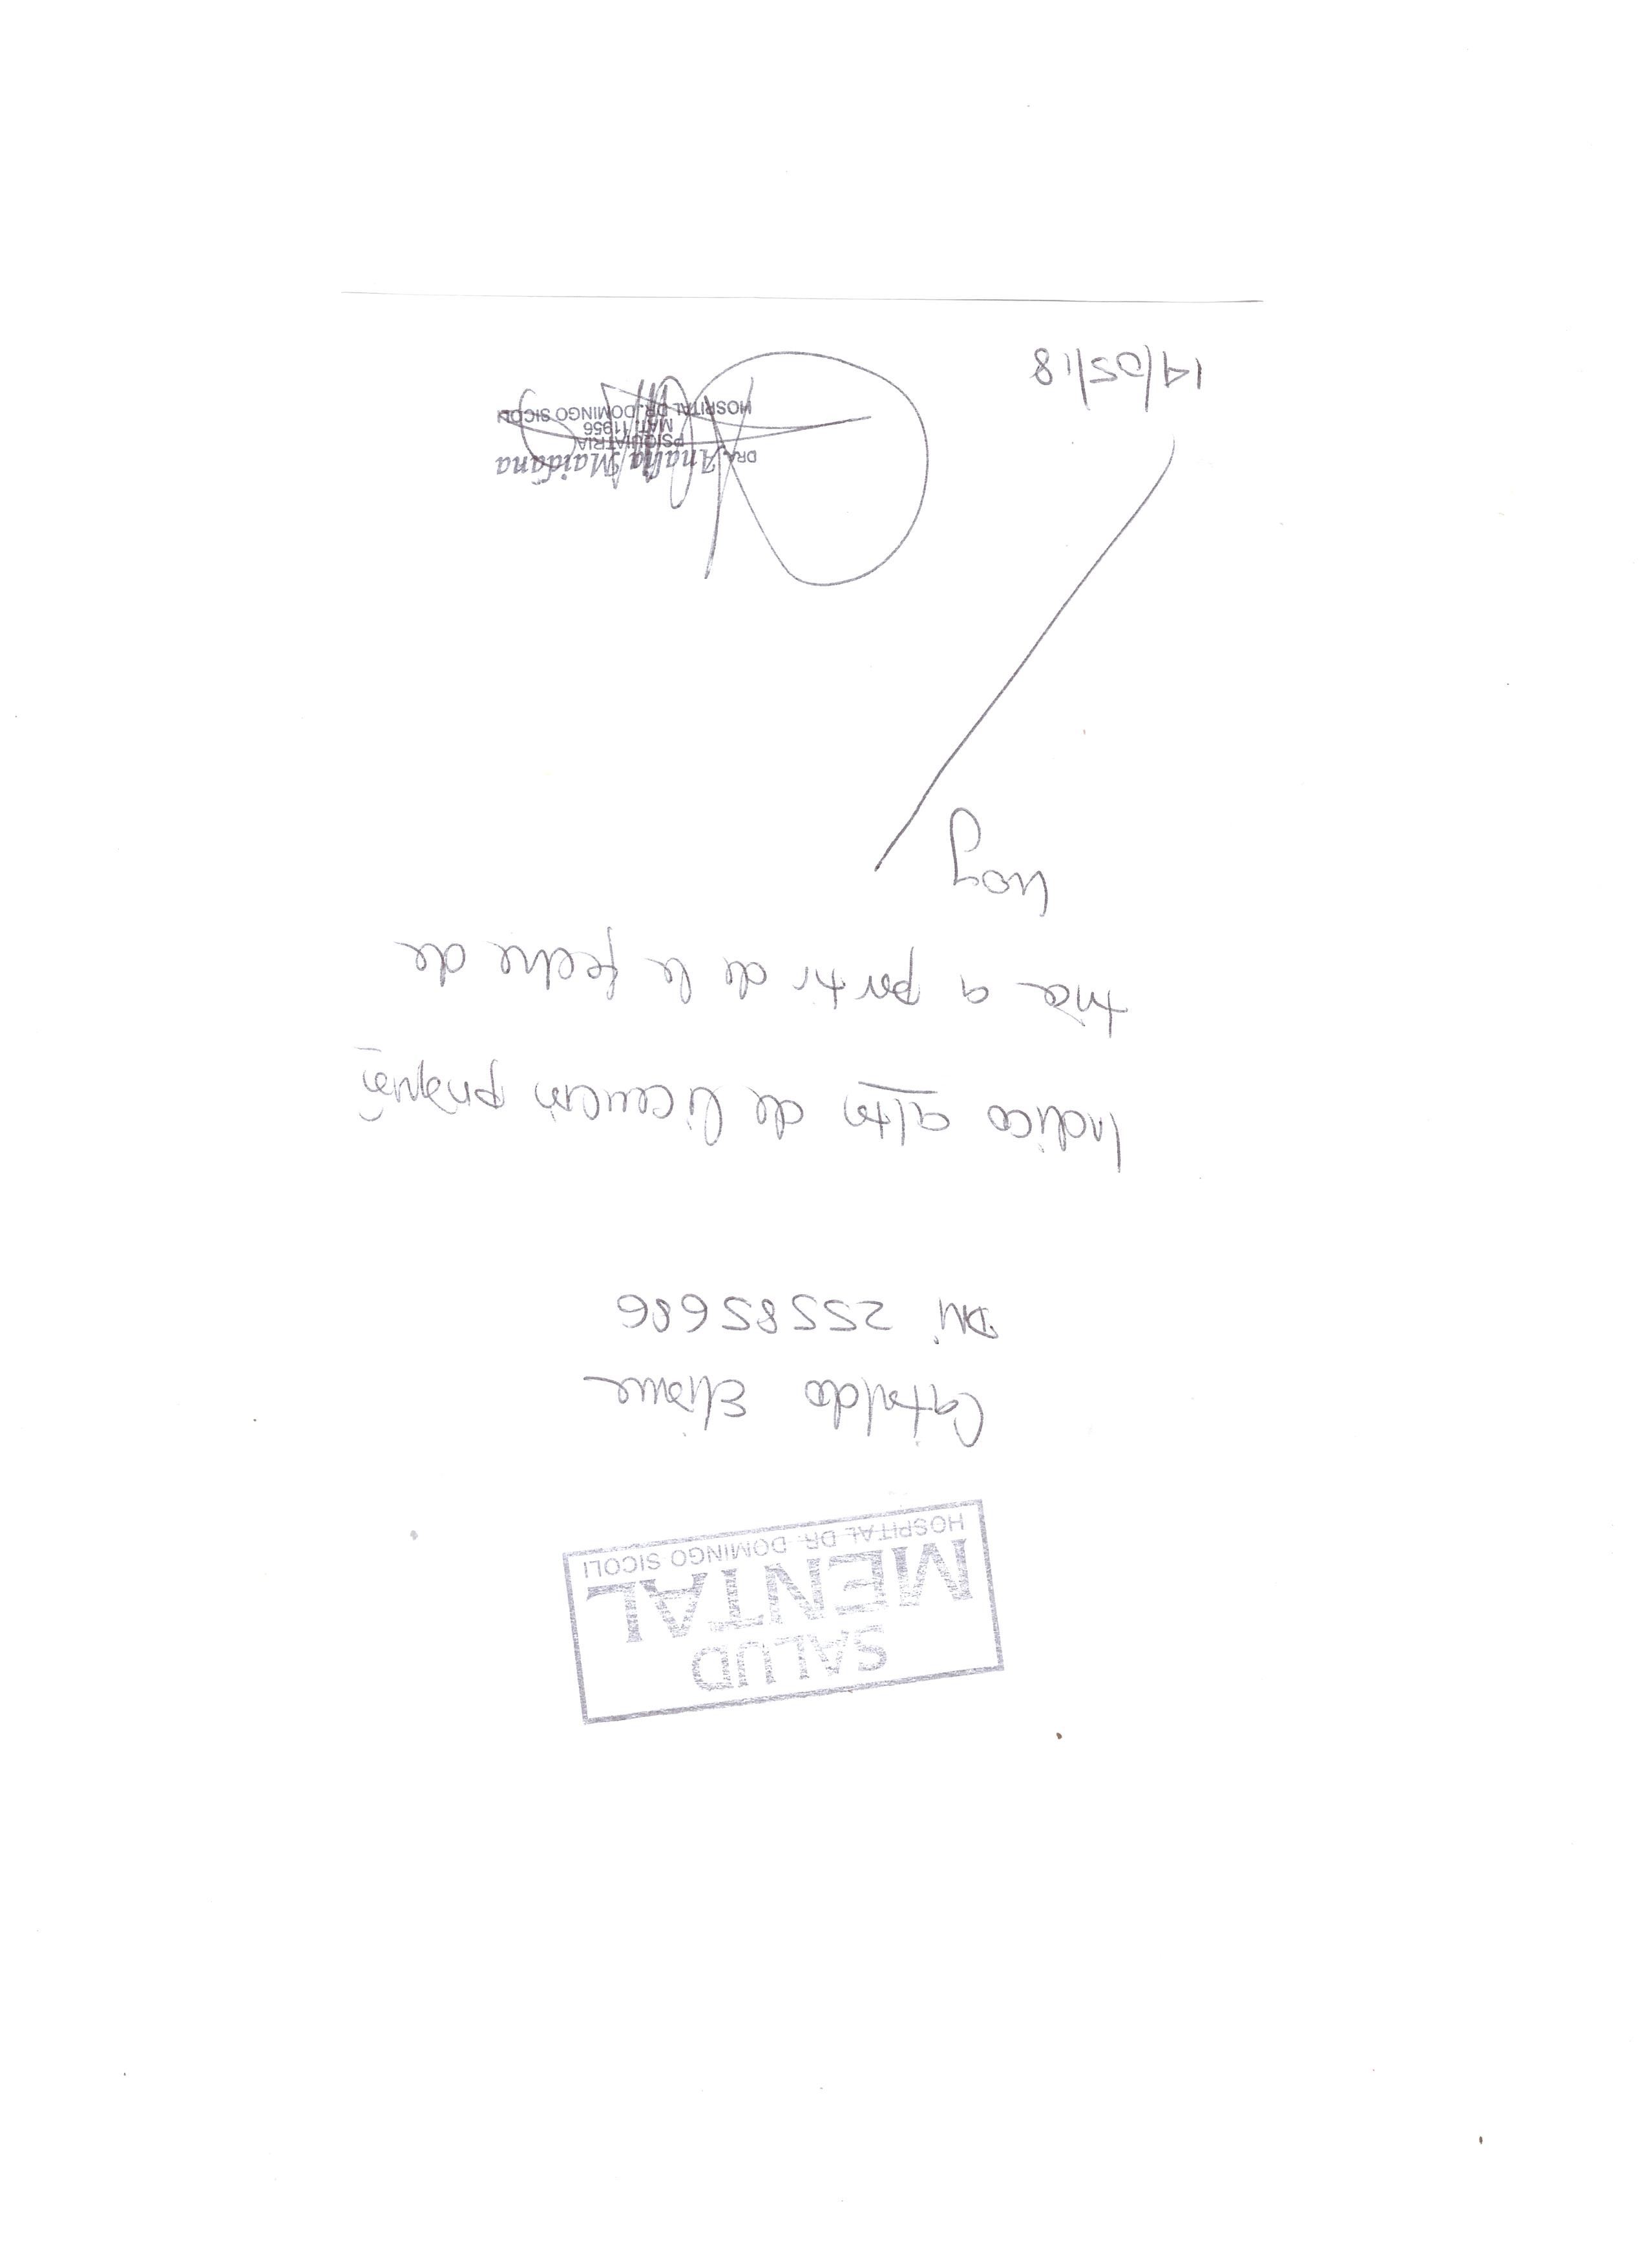 SALUD
MENTAL
HOSPITAL DR. DOMINGO SICOLI
Cataldo Eliana
DNI 25585686
Indico alta de licencia psiquiá
trica a partir de la fecha de
hoy
14/05/18
DRA. Analia Maidana
PSIQUIATRIA
MAT. 11956
HOSPITAL DR. DOMINGO SICOLI